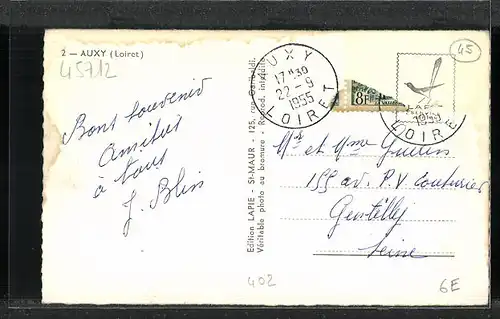 2 — AUXY (Loiret)
45712
45
AUXY
17H30
22-9
1955
LOIRET
8F
1955
LOIR
Bons souvenirs
Amitiés
à tous
J. Blin
Mr et Mme Guillin
155 av. P.V Couturier
Gentilly
Seine
Edition LAPIE - St-MAUR - 125, rue Garibaldi.
Véritable photo au bromure - Reprod. interdite
402
6E